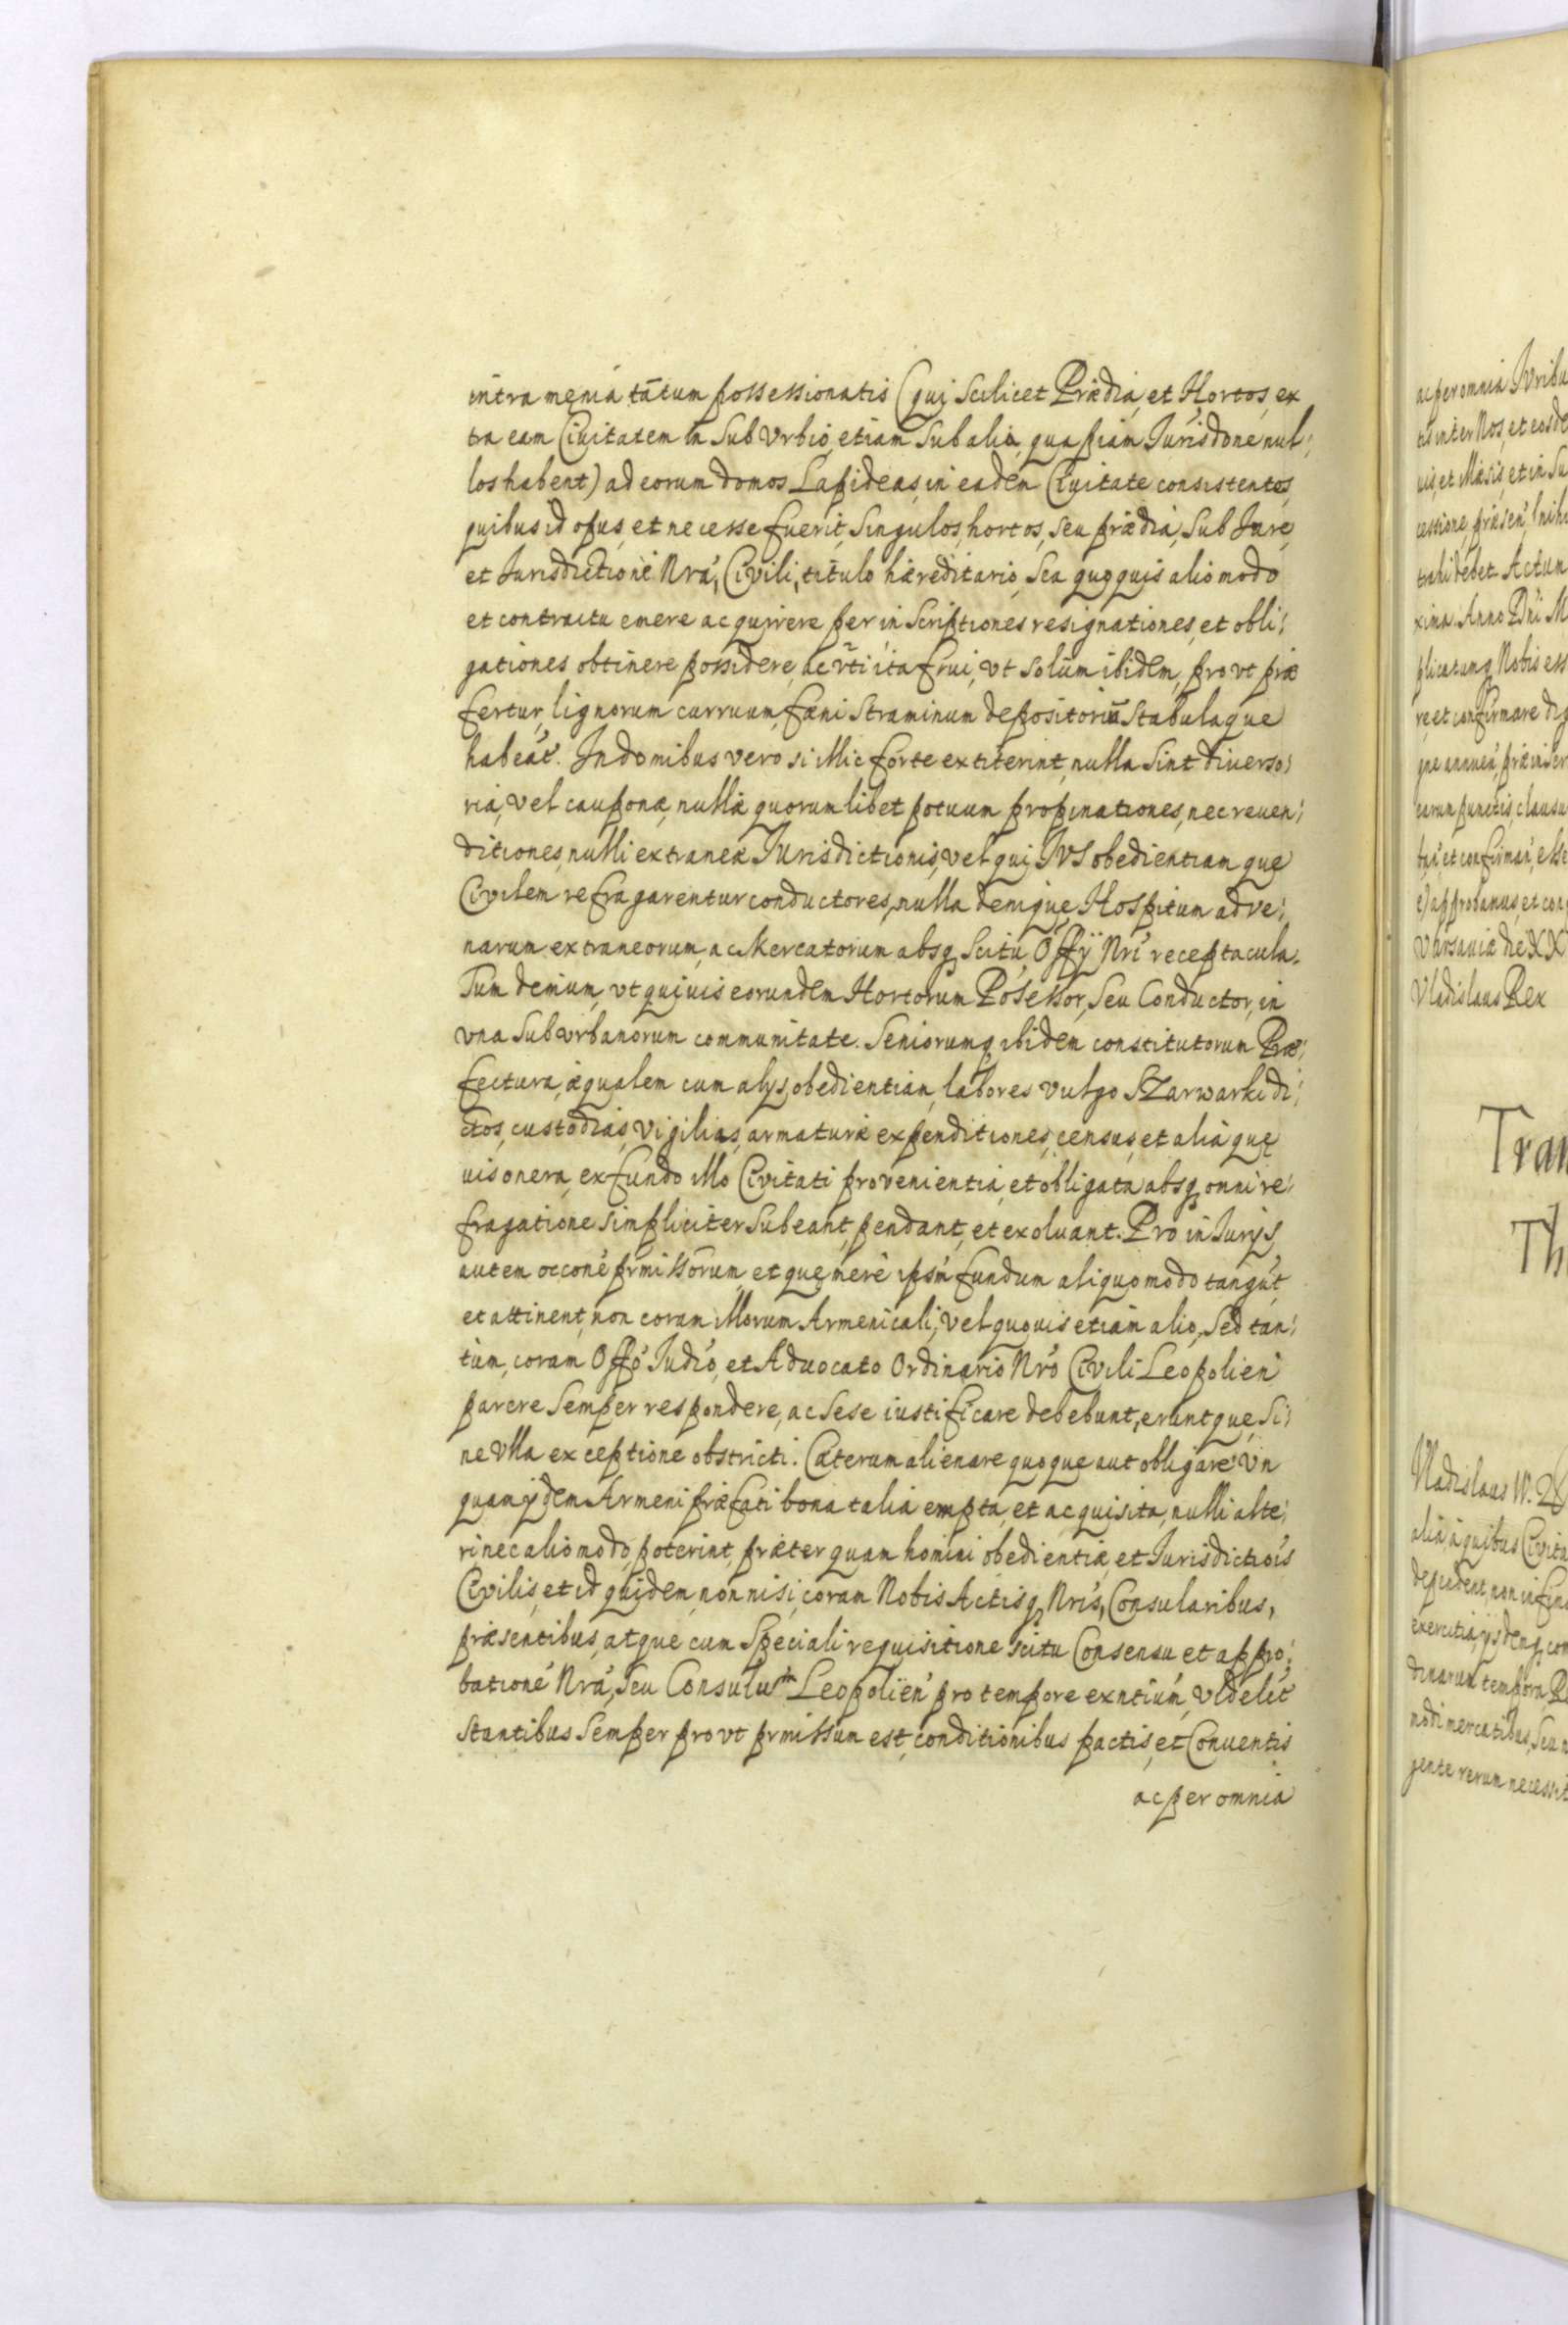 intra menia tātum possessionatis (qui scilicet Prædia, et Hortos, ex
tra eam Civitatem in SubUrbio, etiam sub alia, quapiam Jurisdone nul:
los habent) ad eorum domos Lapideas, in eadem Civitate consistentes,
quibus id opus, et necesse fuerit, singulos, hortos, seu prædia, sub Jure,
et Jurisdictione Nrá, Civili, titulo hæreditario, seu quoquis alio modo
et contractu emere acquirere per inscriptiones resignationes, et obli:
gationes obtinere possidere, ac uti ita frui, vt solùm ibidem, pro vt præ
fertur, lignorum curruum, fæni straminum depositoriū stabulaque
habeát. In domibus vero si illic forte extiterint, nulla sint diverso:
ria, vel cauponæ, nullæ quorumlibet potuum propinationes, nec reven:
ditiones, nulli extraneæ Jurisdictionis, vel qui JVS obedientiamque
Civilem refragarentur conductores, nulla denique Hospitum adve:
narum extraneorum, ac Mercatorum absq scitu Offÿ Nri receptacula.
Tum demum, vt quiuis eorundem Hortorum Posessor, seu Conductor, in
vna subvrbanorum communitate. Seniorumq ibidem constitutorum Præ:
fectura, æqualem cum alijs obedientiam, labores vulgo SZarwarki di:
ctos, custodias, vigilias, armaturæ expenditiones, census, et alia quę
uis onera, ex fundo illo Civitati provenientia, et obligata absq omni re:
fragatione simpliciter subeant, pendant, et exoluant. Pro inIurijs
autem occone prmissorum, et quę mere ipsm fundum aliquo modo tangút
et attinent, non coram illorum Armenicali, vel quouis etiam alio, sed tan:
tùm, coram Offó Judió, et Aduocato Ordinario Nró Civili Leopolien
parere semper respondere, ac sese iustificare debebunt, eruntque si:
ne vlla exceptione obstricti. Cæterum alienare quoque aut obligare vn
quam ijdem Armeni præfati bona talia empta, et acquisita, nulli alte:
ri nec alio modo, poterint, præterquam homini obedientiæ, et Jurisdictiois
Civilis, et id quidem, non nisi, coram Nobis Actisq Nris, Consularibus,
præsentibus, atque cum speciali requisitione scitu Consensu et appro:
batione Nrá, seu Consulum Leopolien pro tempore exntium, vldelit
stantibus semper pro vt prmissum est, conditionibus pactis, et Conventis
ac per omnia
ac per omnia Juribu
tis inter Nos, et eosde
uis, et
cessione, præsen
trahi debet. Actum
xima Anno Dni M
plicatumq Nobis ess
re, et confirmare dig
que annuen, præinser
earum punctis, clausu
e) approbamus, et con
Varsaviæ die XX
Vladislaus Rex
Tran
Th
Vladislaus IV.
alia, à quibus Civita
exercitia, ijsdemq com
dinarum tempora
modi mercatibus, seu n
gente rerum necessit